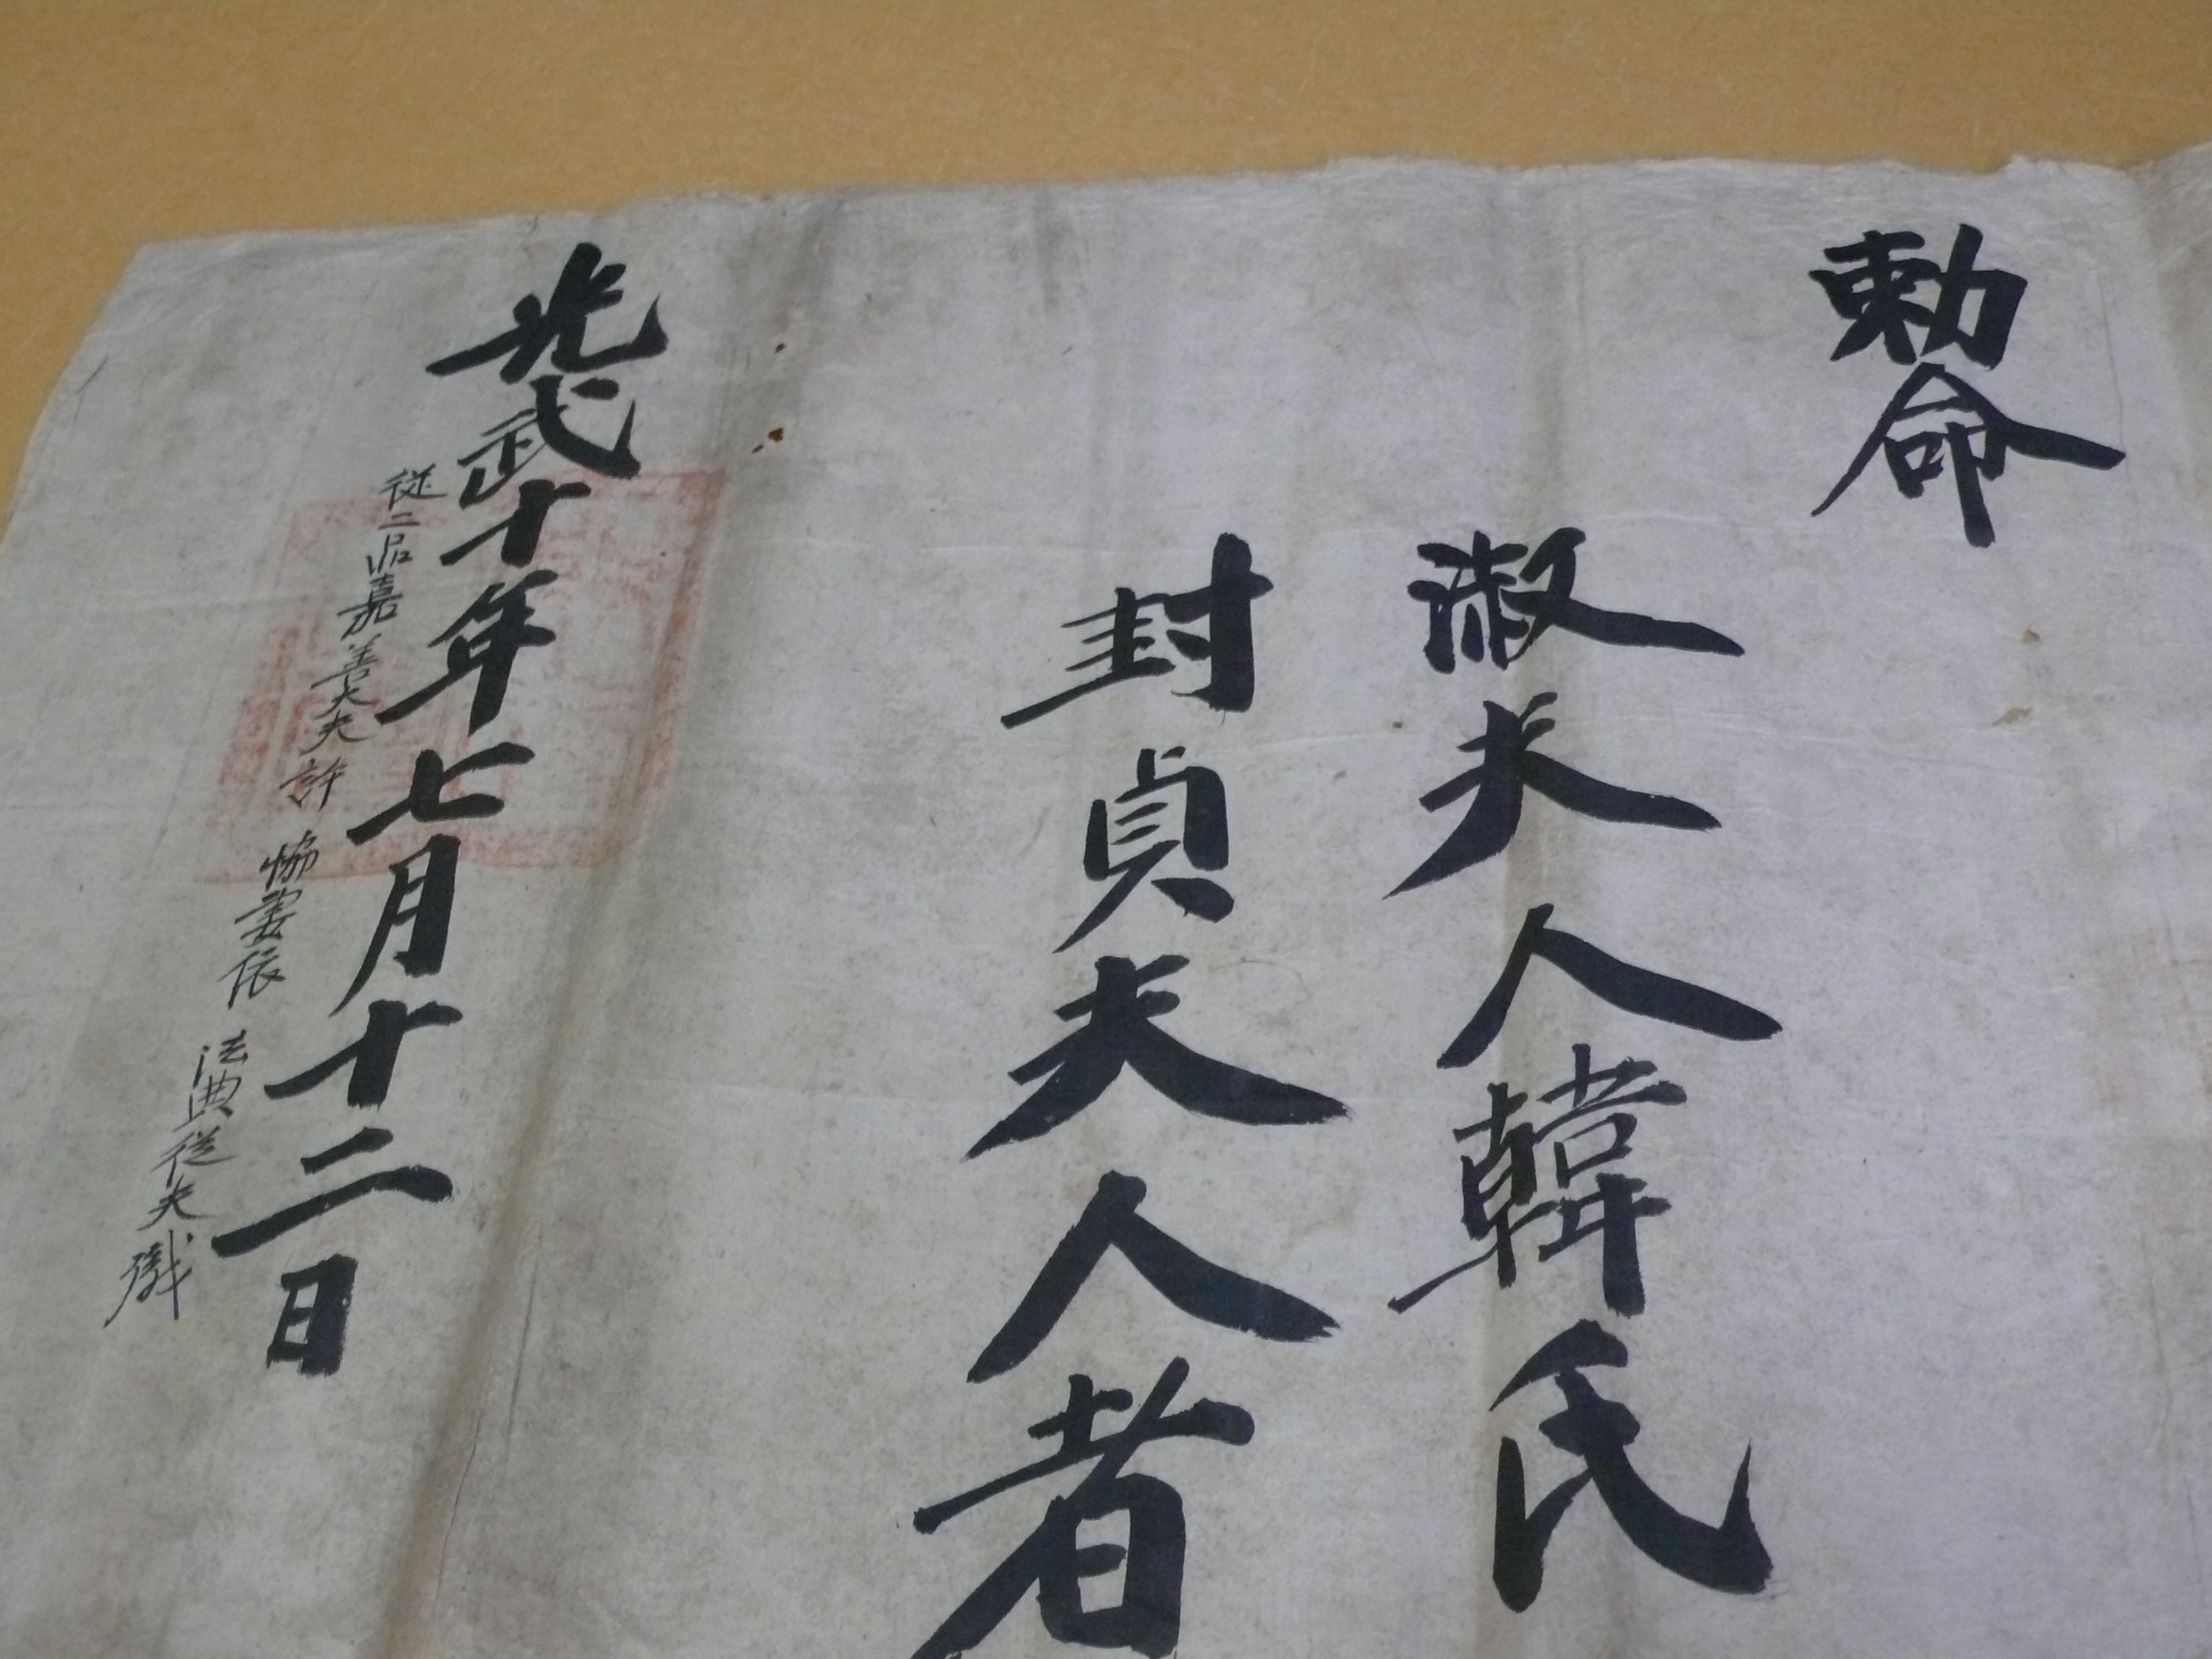 勅命
淑夫人韓氏
封貞夫人者
光武十年七月十二日
從二品嘉善大夫許 協妻依 法典從夫職